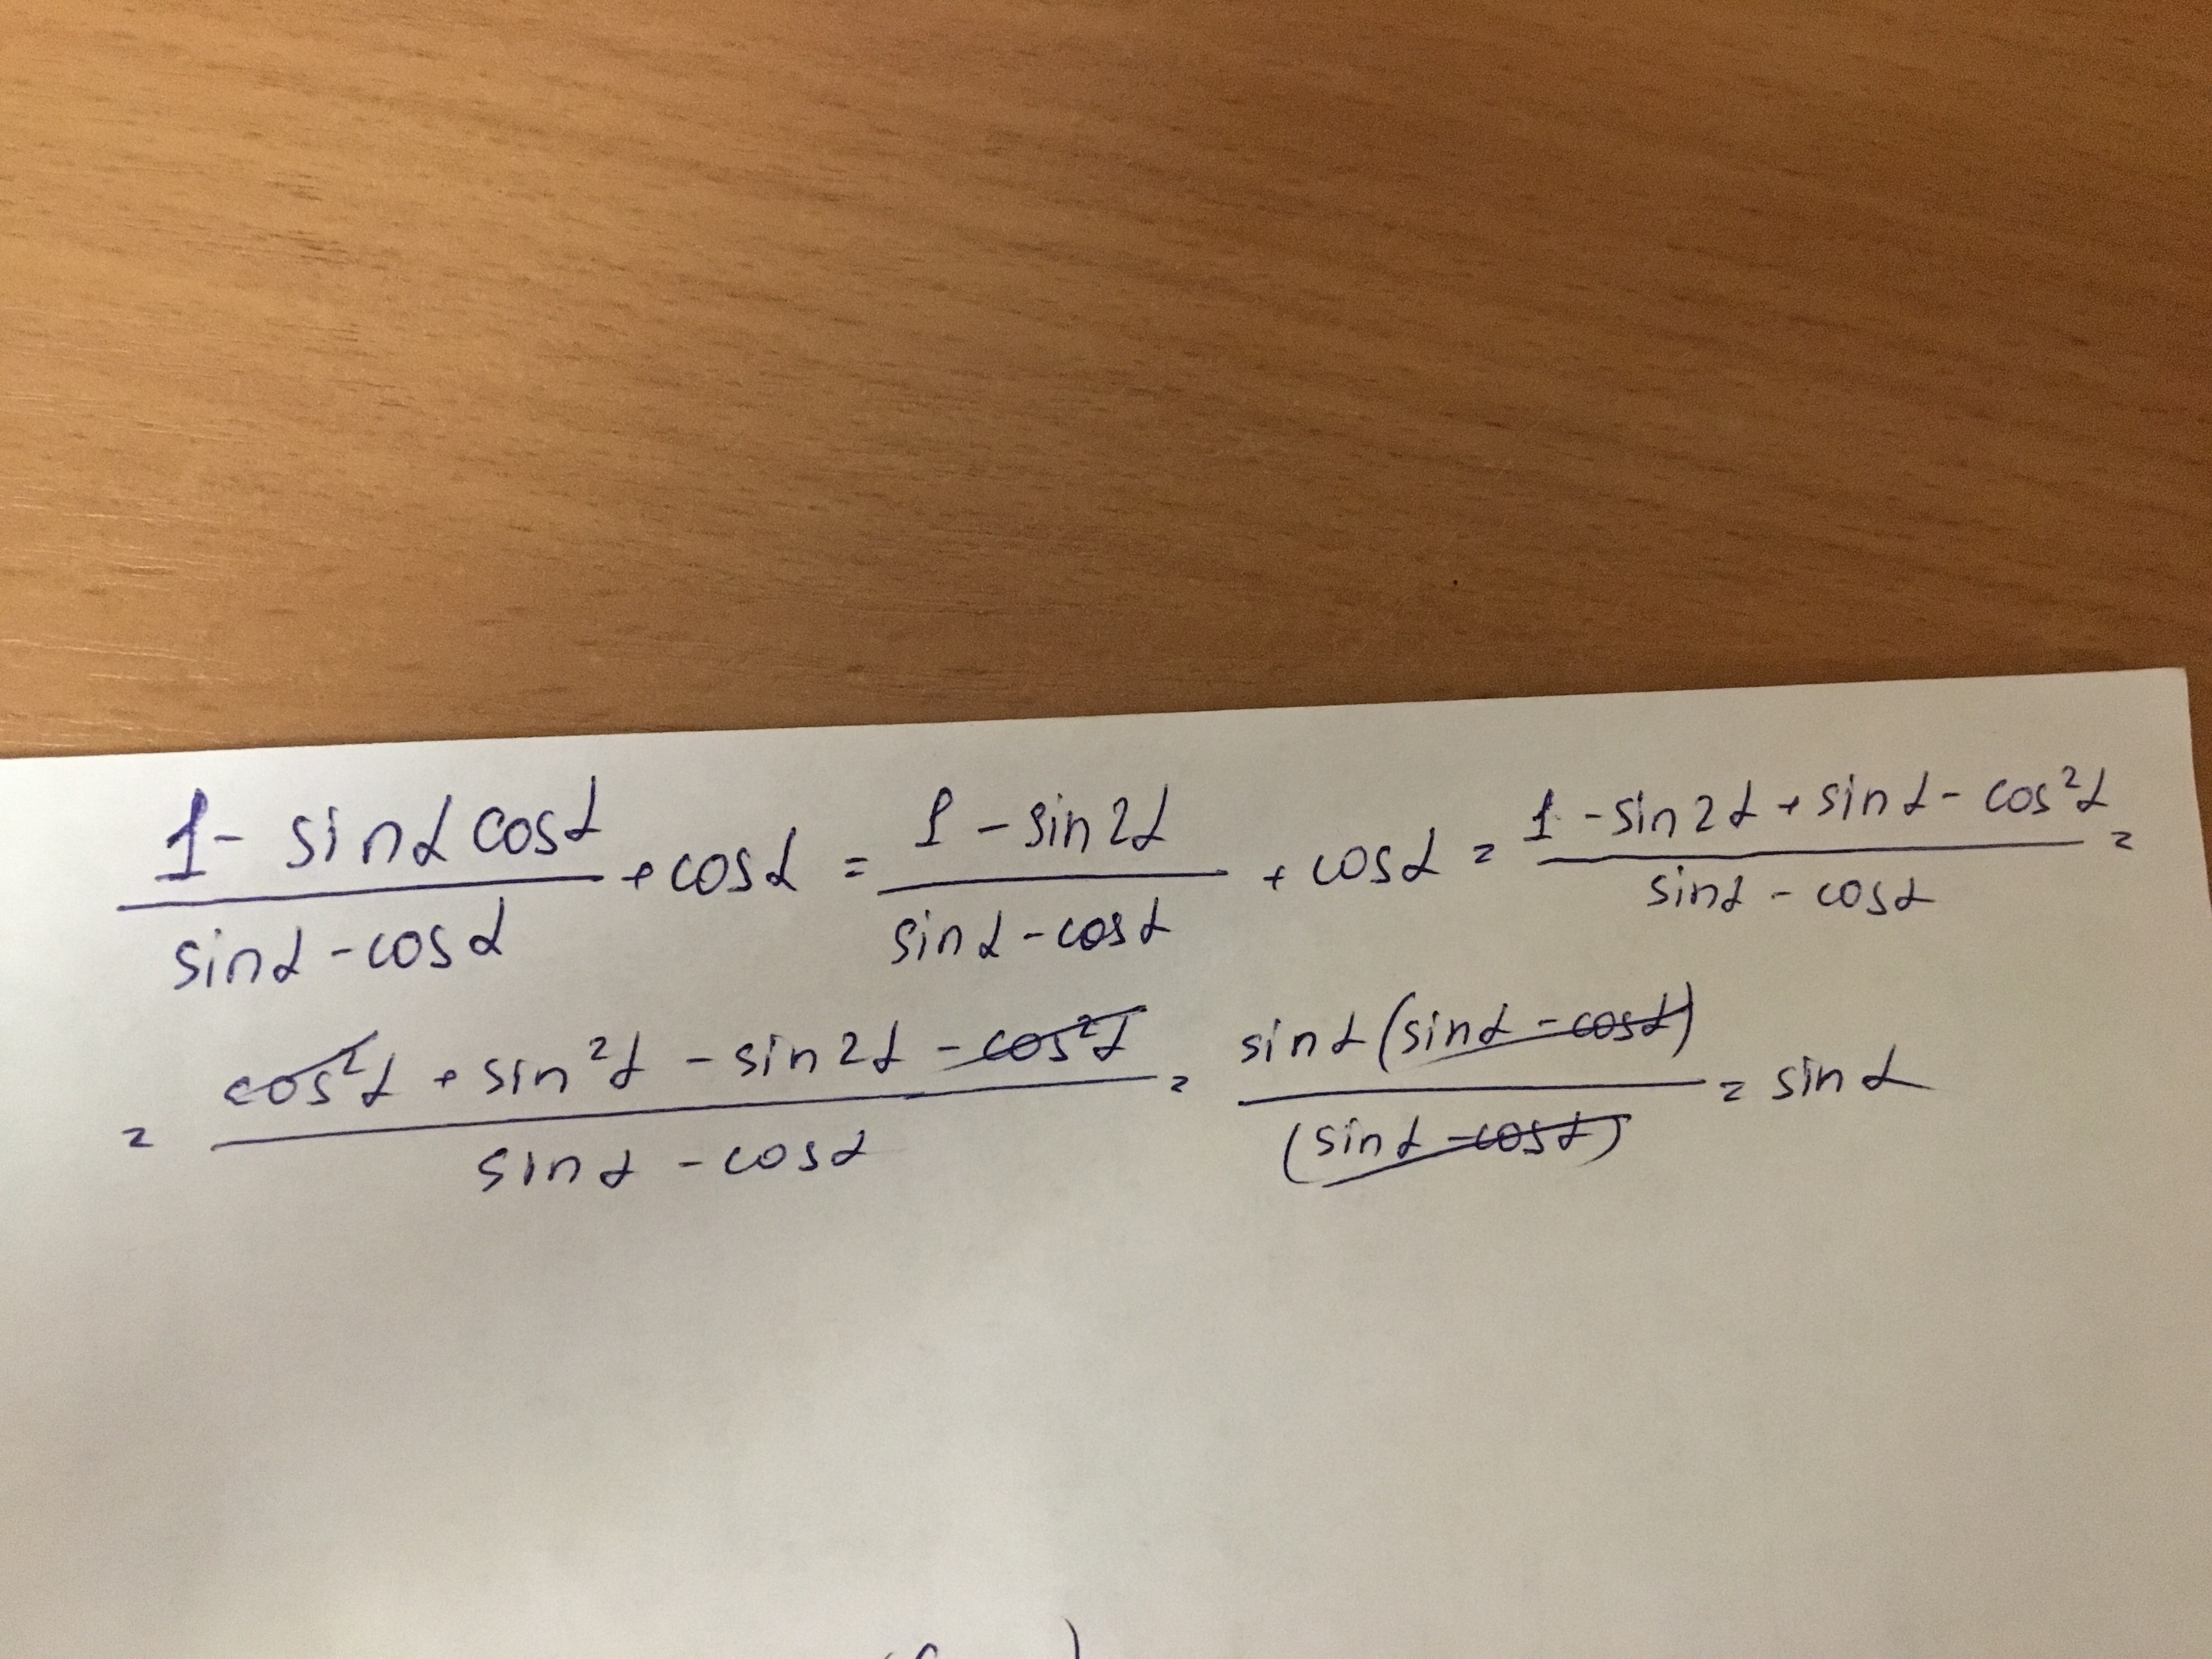 (1 - sinα cosα)/(sinα - cosα) + cosα = (1 - sin2α)/(sinα - cosα) + cosα = (1 - sin2α + sinα - cos²α)/(sinα - cosα) =
= (cos²α + sin²α - sin2α - cos²α)/(sinα - cosα) = sinα(sinα - cosα)/(sinα - cosα) = sinα